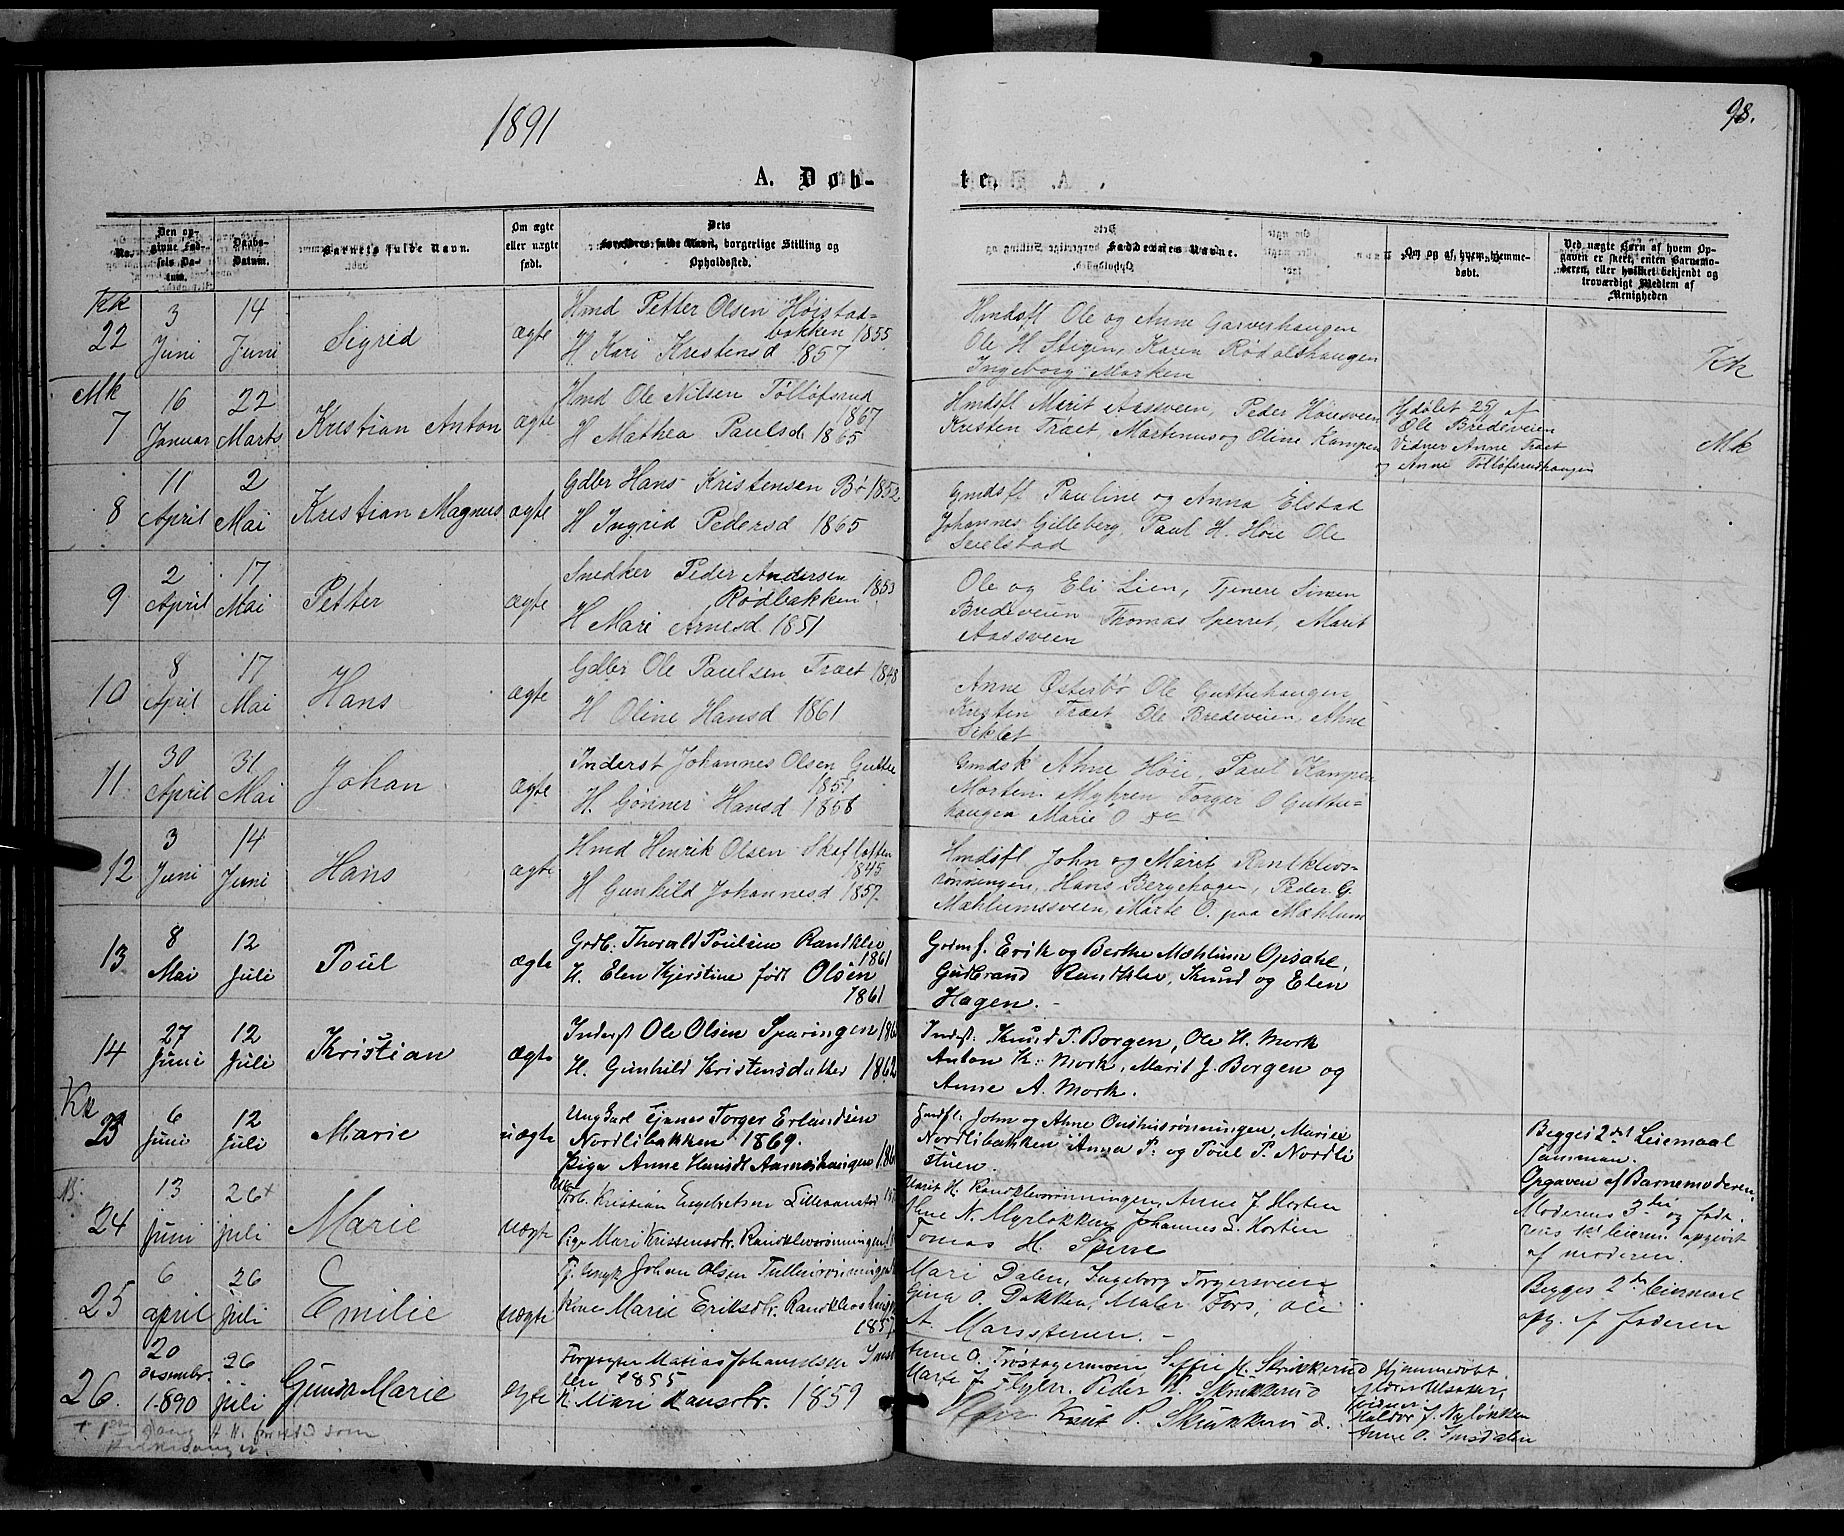 1891
98.
A. Døb-
te.
No.
Den op-
givne Fød-
sels Da-
tum.
Daabs-
Datum.
Barnets fulde Navn.
Om ægte
eller uægte
født.
Dets
Forældres fulde Navn, borgerlige Stilling og
Opholdssted.
Faddernes Navne.
Om og af hvem hjemme-
døbt.
Ved uægte Børn af hvem Op-
gaven er skeet, enten Barnemo-
deren, eller hvilket bekjendt og
troværdigt Medlem af
Menigheden
Kk
22
3
Juni
14
Juni
Sigrid
ægte
Hmd Petter Olsen Høistad-
bakken 1855
H Kari Kristensd 1857
Hmdsfl Ole og Anne Garveshaugen
Ole H Stigen, Karen Rødalshaugen
Ingeborg Marken
Kk
Mk
7
16
Januar
22
Marts
Kristian Anton
ægte
Hmd Ole Nilsen Tølløfsrud
1867
H Mathea Paulsd 1865
Hmdsfl Marit Aassveen, Peder Høiesveen
Kristen Træt, Martenus og Oline Kampen
Hjdøbt 25/1 af
Ole Bredeveien
Vidner Anne Træt
og Anne Tølløfsrudhaugen
Mk
8
11
April
2
Mai
Kristian Magnus
ægte
Gdbr Hans Kristensen Bø 1852
H Ingrid Pedersd 1865
Gmdsfl Pauline og Anna Elstad
Johannes Gilleberg, Paul H. Høie Ole
Sielstad
9
2
April
17
Mai
Petter
ægte
Snedker Peder Andersen
Rødbakken 1853
H Mari Arnesd 1851
Ole og Eli Lien, Tjenere Simen
Bredeveien Thomas Sperret, Marit
Aassveen
10
8
April
17
Mai
Hans
ægte
Gdbr Ole Paulsen Træet 1848
H Oline Hansd 1861
Anne Østerbø Ole Guttuhaugen
Kristen Træet Ole Bredeveien, Ahne
Siklet
11
30
April
31
Mai
Johan
ægte
Inderst Johannes Olsen Guttu
1851
H. Gønner Hansd 1858
Gmdsk Ahne Høie, Paul Kampen
Morten Myhren Torger O Guttu-
haugen Marie O do
12
3
Juni
14
Juni
Hans
ægte
Hmd Henrik Olsen Skafloften
1845
H Gunhild Johannesd 1857
Hmdsfl John og Marit Randklevs-
rønningen, Hans Bergehagen, Peder G.
Mæhlumssveen, Marte O. paa Mæhlum
13
8
Mai
12
Juli
Poul
ægte
Grdb. Thorvald Poulsen Randklev
1861
H. Elen Kjerstine født Olsen
1861
Grdmf. Erik og Berthe Mæhlum Opsahl,
Gudbrand Randklev, Knud og Elen
Hagen. -
14
27
Juni
12
Juli
Kristian
ægte
Inderst Ole Olsen Sparingen 186
H. Gunhild Kristensdatter 1862
Indst. Knud T. Borgen, Ole H. Mork
Anton K. Mork, Marit J. Borgen og
Anne A. Mork.
Kk
23
6
Juni
12
Juli
Marie
uægte
Ungkarl Tjener Torger Erlandsen
Nordlibakken 1869.
Pige Anne Knudsdt Aarneshaugen 186
John og Ahne Onshusrønningen, Marie
Nordlibakken Anna P. og Poul P. Nordli
stuen.
Begges 2det Leiemaal
sammen.
Opgaven af Barnemoderen.
24
13
juni
26+
juli
Marie
uægte
Kristian Engebretsen Lilleaamodt
Pige Mari Kristensdtr. Randklevsrønningen
Marit H. Randklevsrønningen, Anne J Horten
Ahne N. Myrløkken Johannes J. Horten
Tomas H. Spirre
Moderens 3die og fade-
rens 1st leierm. opgivet
af moderen.
25
6
april
26
juli
Emilie
uægte
Tj. Ungk Johan Olsen Tullusrønningen
Kone Marie Eriksdtr. Randklevshaugen
1857
Mari Dalen, Ingeborg Torgersveen
Gina O. Bakken, Maler Fors, Ole
A. Marssteien. -
Begges 2det leiermaal
opg. af faderen
26.
20
desember
1890
26
juli
Gunda Marie
ægte
Forpagter Matias Johannesen
1855
K. Mari Hansdtr. 1859
Anne O. Trøstagermoen Soffie K. Skrukkerud
Marte J Flyen. Peder K. Skrukkerud
Knut P. Skrukkerud.
Hjemmedøbt
Vidner
Haldor J. Nyløkken
Anne O. Imsdalen